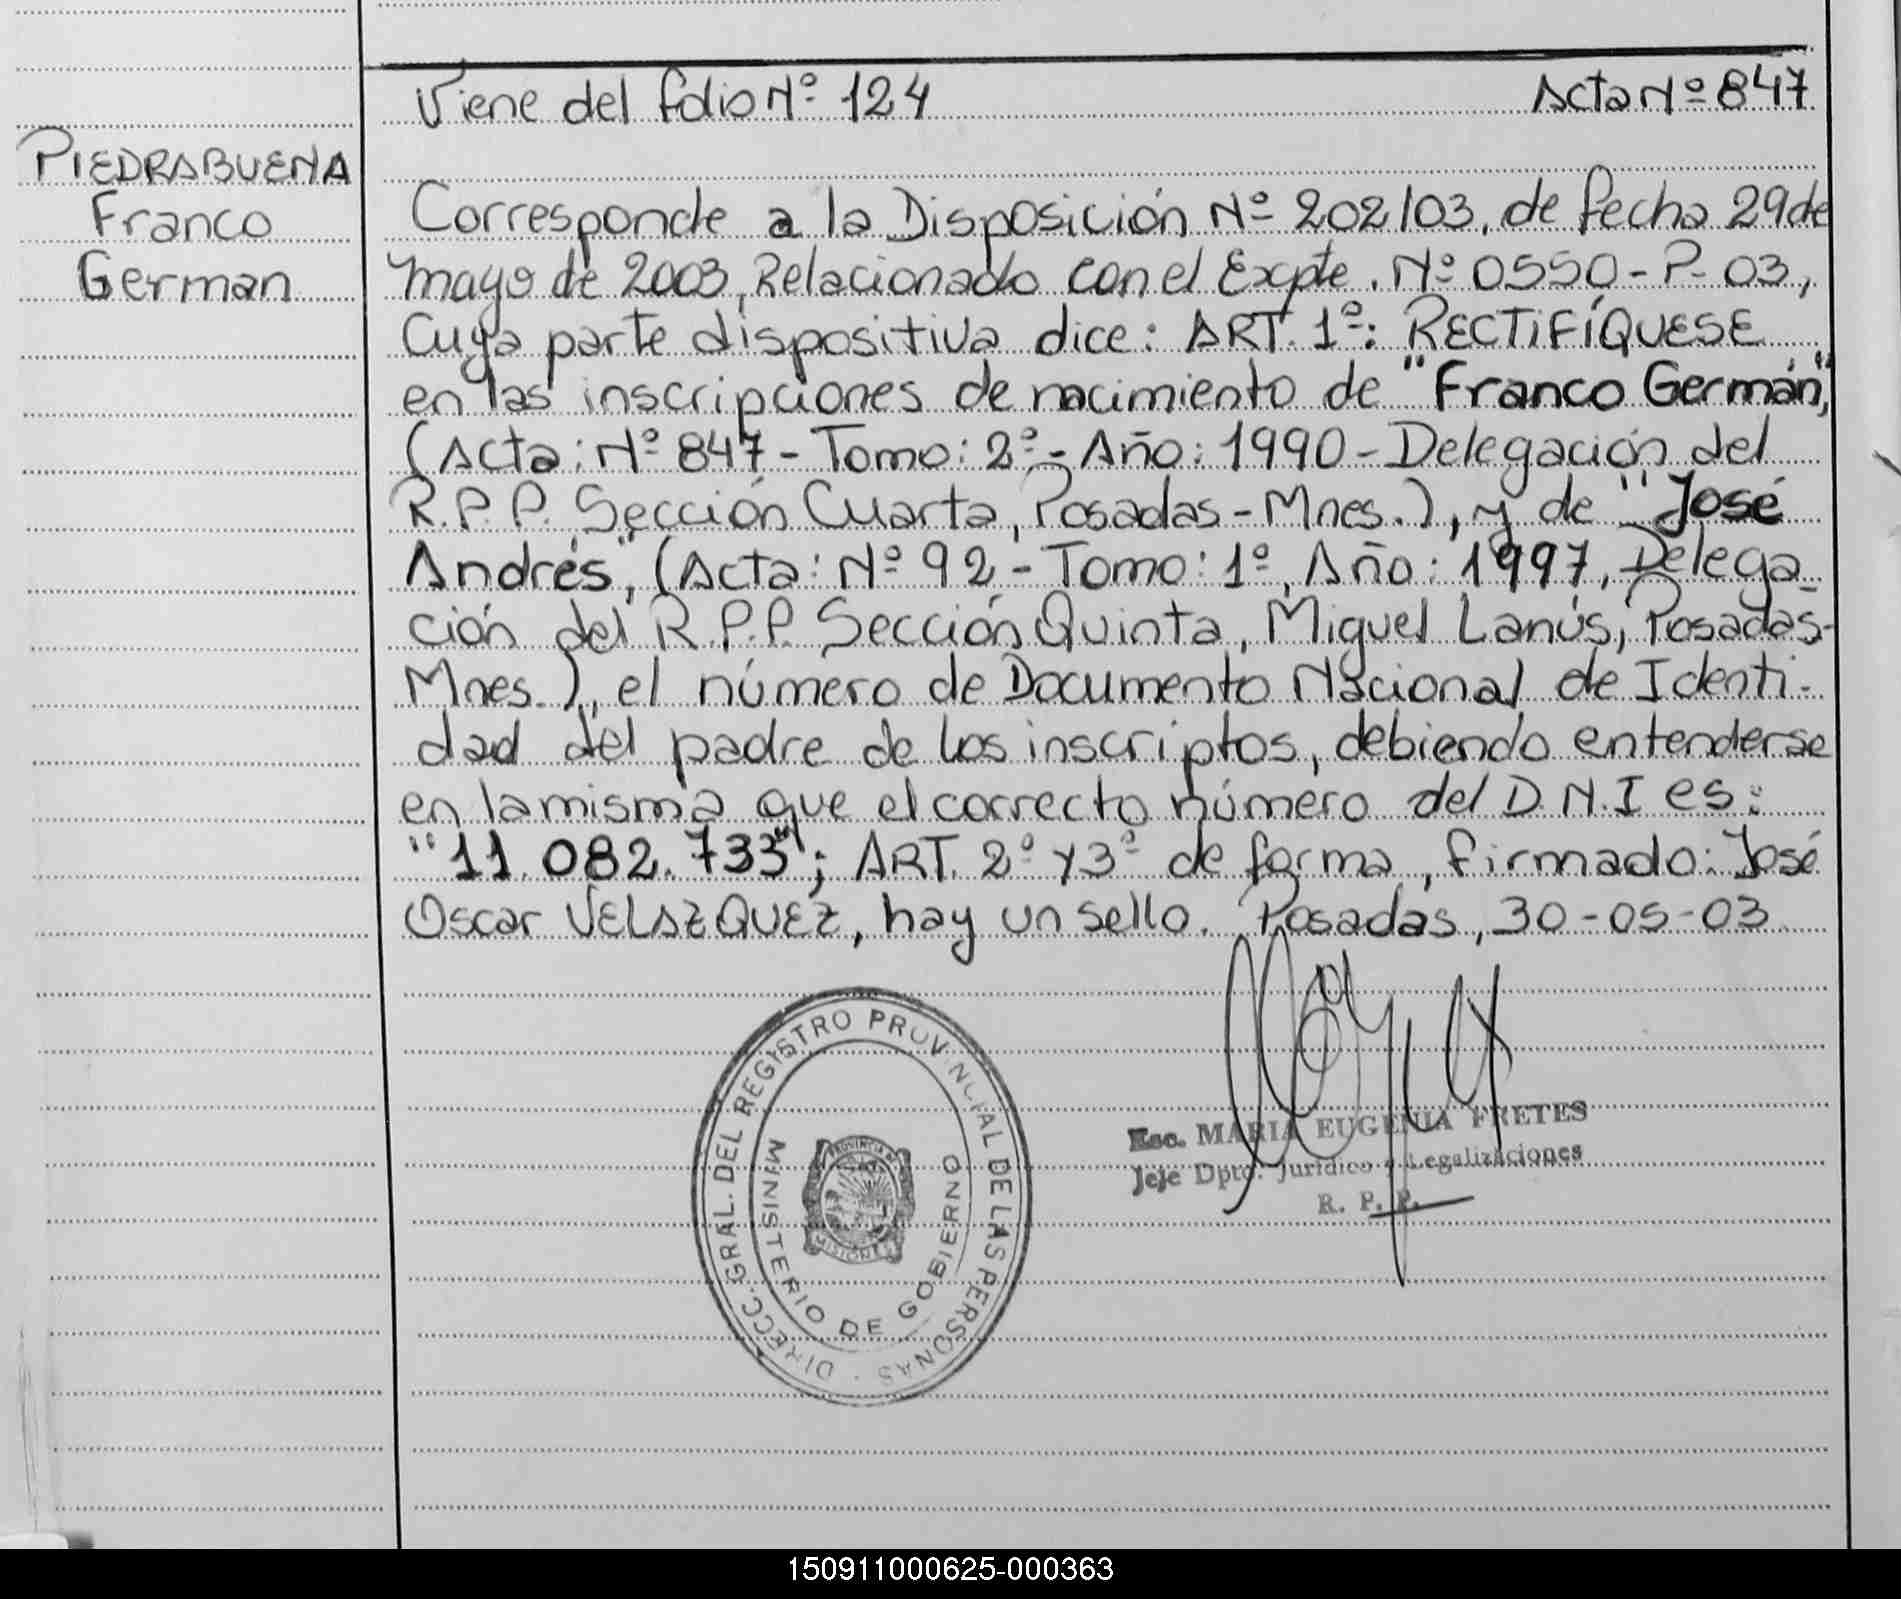 Viene del folio Nº 124
Acta Nº 847
PIEDRABUENA
Franco
German
Corresponde a la Disposición Nº 202/03, de fecha 29 de
mayo de 2003, Relacionado con el Expte. Nº 0550-P-03,
Cuya parte dispositiva dice: ART. 1º: RECTIFÍQUESE
en las inscripciones de nacimiento de "Franco Germán",
(Acta: Nº 847 - Tomo: 2º - Año: 1990 - Delegación del
R.P.P. Sección Cuarta, Posadas - Mnes.), y de "José
Andrés", (Acta: Nº 92 - Tomo: 1º, Año: 1997, Delega-
ción del R.P.P. Sección Quinta, Miguel Lanús, Posadas-
Mnes.), el número de Documento Nacional de Identi-
dad del padre de los inscriptos, debiendo entenderse
en la misma que el correcto número del D.N.I es:
"11.082.733"; ART. 2º y 3º de forma, firmado: José
Oscar VELAZQUEZ, hay un sello. Posadas, 30-05-03
DIRECC. GRAL. DEL REGISTRO PROVINCIAL DE LAS PERSONAS
MINISTERIO DE GOBIERNO
PROVINCIA DE
MISIONES
Esc. MARIA EUGENIA FRETES
Jefe Dpto. Jurídico y Legalizaciones
R. P. P.
150911000625-000363